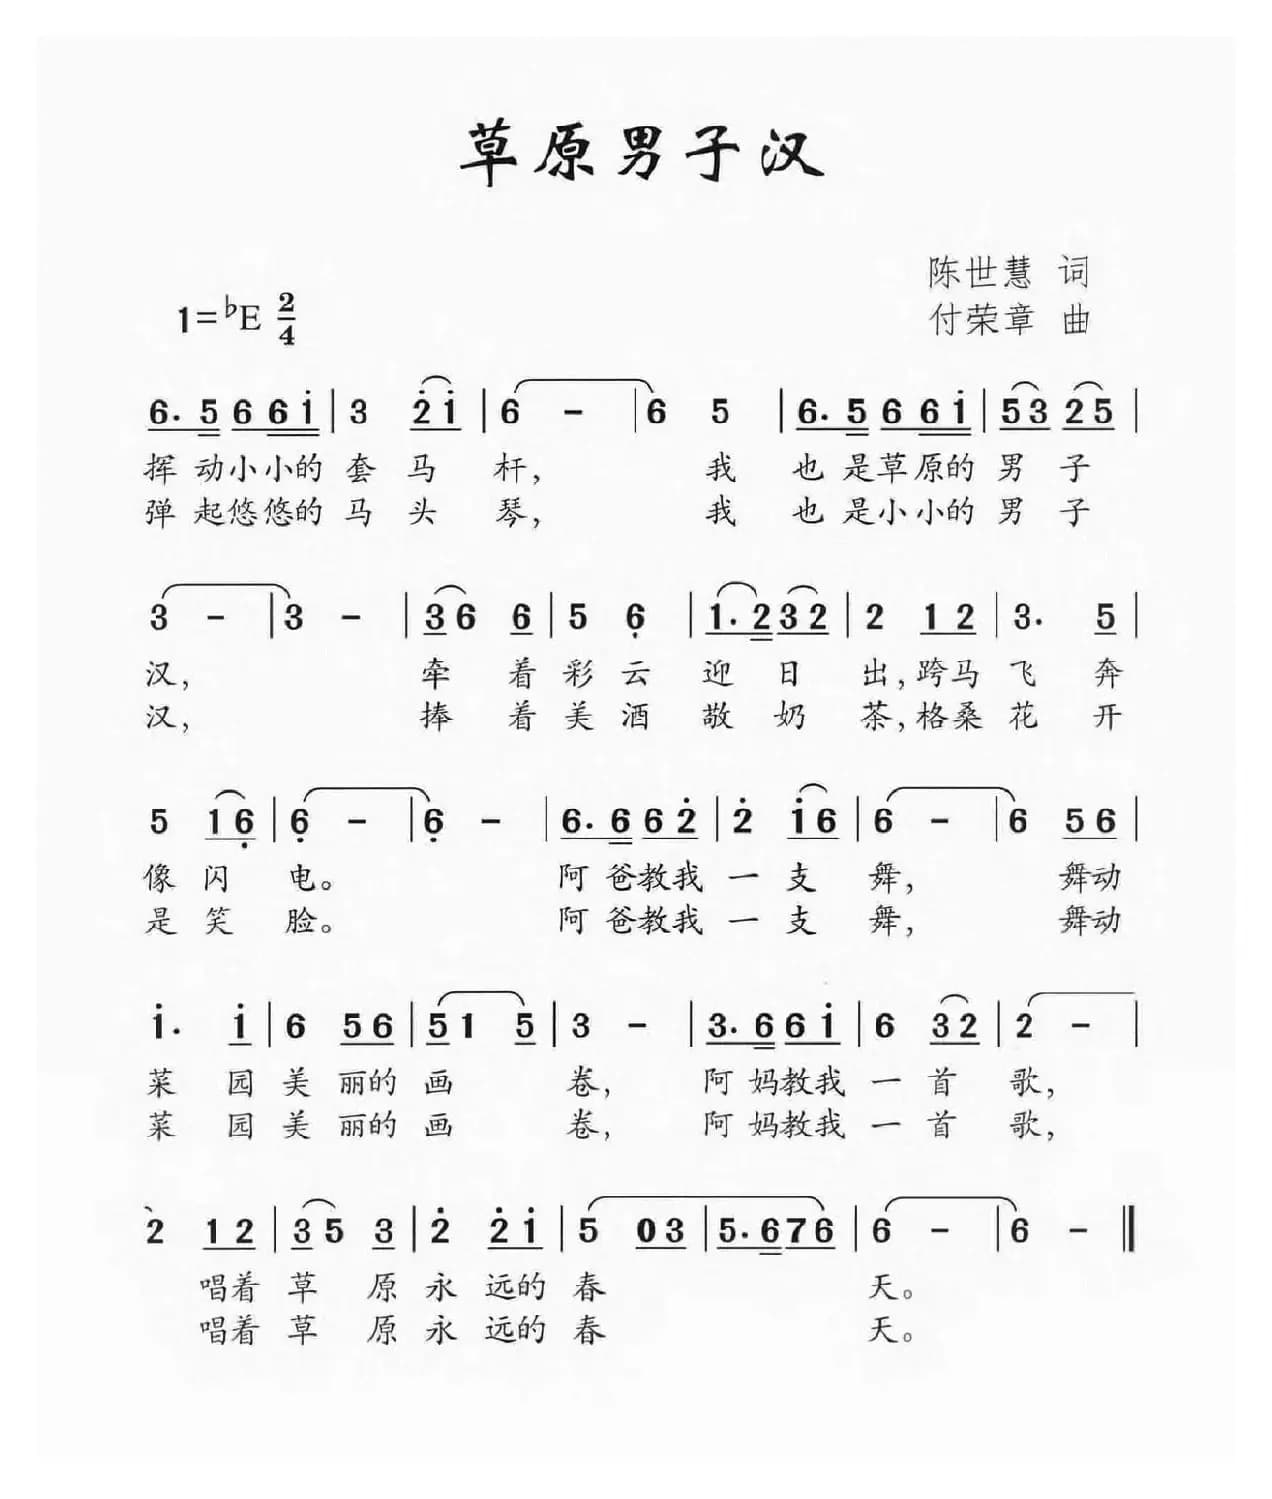 草原男子汉
陈世慧 词
1=♭E 2/4
付荣章 曲
6. 5 6 6 i | 3 2̇ i | 6 - | 6 5 | 6. 5 6 6 i | 5 3 2 5 |
挥动小小的套马杆，我也是草原的男子
弹起悠悠的马头琴，我也是小小的男子
3 - | 3 - | 3 6 6 | 5 6̣ | 1. 2 3 2 | 2 1 2 | 3. 5 |
汉，牵着彩云迎日出，跨马飞奔
汉，捧着美酒敬奶茶，格桑花开
5 1 6̣ | 6̣ - | 6̣ - | 6. 6 6 2̇ | 2̇ i 6 | 6 - | 6 5 6 |
像闪电。阿爸教我一支舞，舞动
是笑脸。阿爸教我一支舞，舞动
i. i | 6 5 6 | 5 1 5 | 3 - | 3. 6 6 i | 6 3 2 | 2 - |
菜园美丽的画卷，阿妈教我一首歌，
菜园美丽的画卷，阿妈教我一首歌，
2 1 2 | 3 5 3 | 2̇ 2̇ i | 5 0 3 | 5. 6 7 6 | 6 - | 6 - ‖
唱着草原永远的春天。
唱着草原永远的春天。